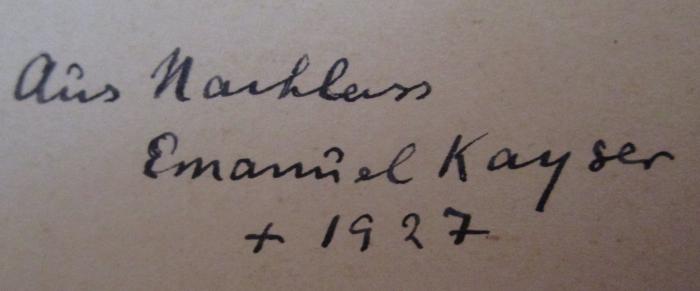 Aus Nachlass
Emanuel Kayser
+ 1927